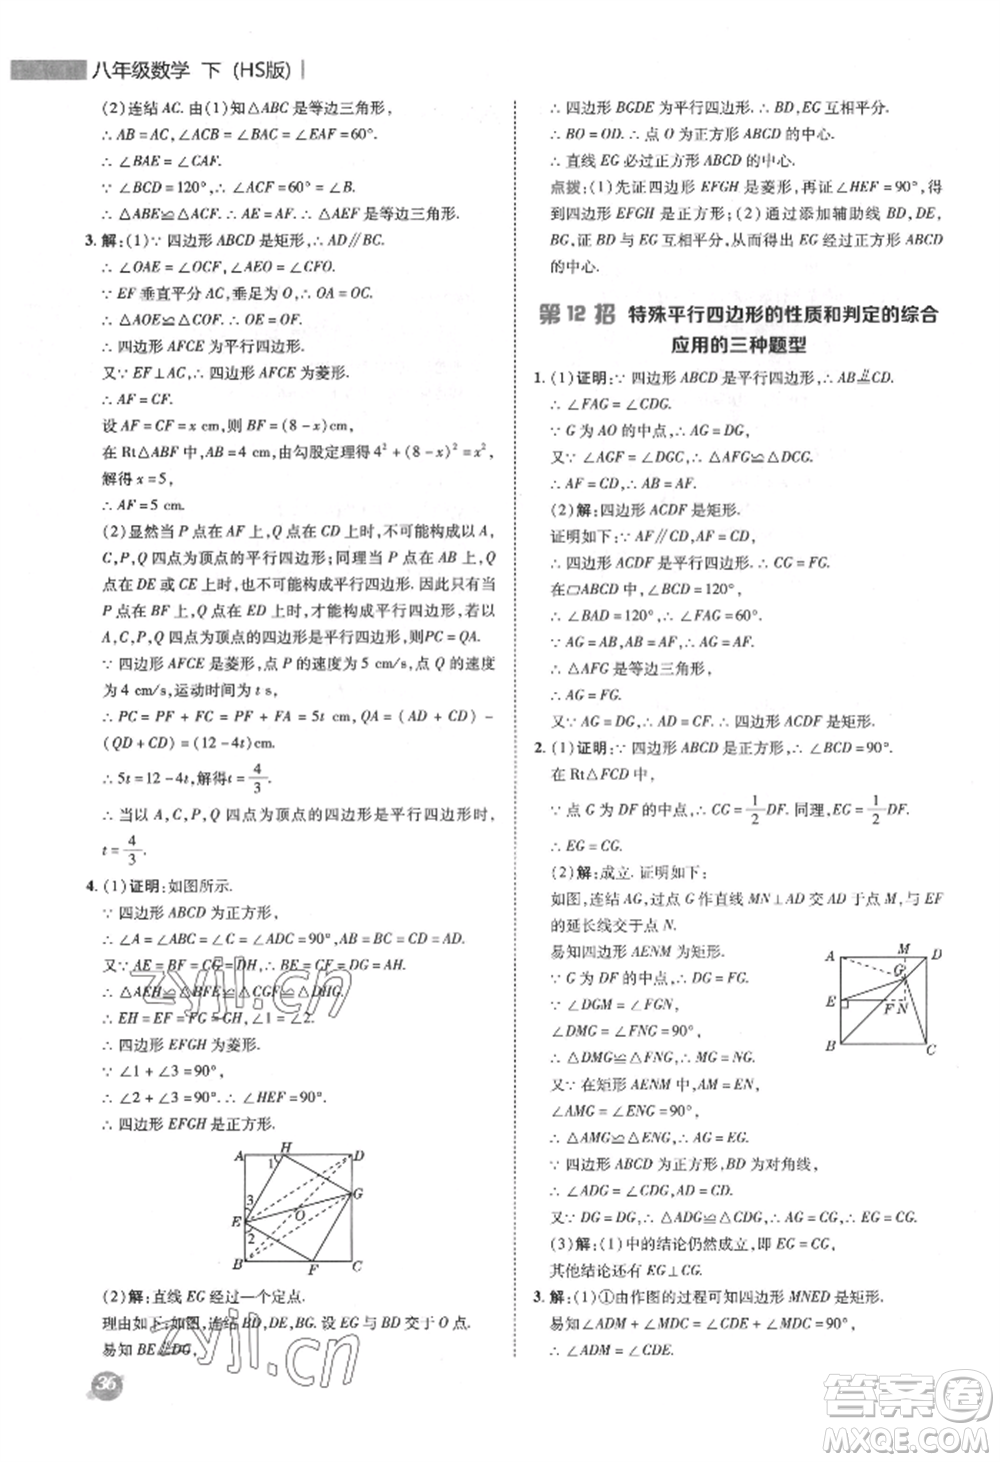 八年级数学 下 (HS版)
(2)连结 AC. 由(1)知△ABC 是等边三角形,
∴ AB = AC,∠ACB = ∠BAC = ∠EAF = 60°.
∴ ∠BAE = ∠CAF.
∵ ∠BCD = 120°,∴ ∠ACF = 60° = ∠B.
∴ △ABE≌△ACF. ∴ AE = AF. ∴ △AEF 是等边三角形.
3. 解:(1)∵ 四边形 ABCD 是矩形,∴ AD∥BC.
∴ ∠OAE = ∠OCF,∠AEO = ∠CFO.
∵ EF 垂直平分 AC,垂足为 O,∴ OA = OC.
∴ △AOE≌△COF. ∴ OE = OF.
∴ 四边形 AFCE 为平行四边形.
又∵ EF⊥AC,∴ 四边形 AFCE 为菱形.
∴ AF = CF.
设 AF = CF = x cm,则 BF = (8 - x) cm,
在 Rt△ABF 中,AB = 4 cm,由勾股定理得 4² + (8 - x)² = x²,
解得 x = 5,
∴ AF = 5 cm.
(2)显然当 P 点在 AF 上,Q 点在 CD 上时,不可能构成以 A,
C,P,Q 四点为顶点的平行四边形;同理当 P 点在 AB 上,Q
点在 DE 或 CE 上时,也不可能构成平行四边形. 因此只有当
P 点在 BF 上,Q 点在 ED 上时,才能构成平行四边形. 若以
A,C,P,Q 四点为顶点的四边形是平行四边形,则PC = QA.
∵ 四边形 AFCE 是菱形,点 P 的速度为 5 cm/s,点 Q 的速度
为 4 cm/s,运动时间为 t s,
∴ PC = PF + FC = PF + FA = 5t cm,QA = (AD + CD) -
(QD + CD) = (12 - 4t) cm.
∴ 5t = 12 - 4t,解得 t = 4/3.
∴ 当以 A,C,P,Q 四点为顶点的四边形是平行四边形时,
t = 4/3.
4. (1)证明:如图所示.
∵ 四边形 ABCD 为正方形,
∴ ∠A = ∠ABC = ∠C = ∠ADC = 90°,AB = BC = CD = AD.
又∵ AE = BF = CG = DH,∴ BE = CF = DG = AH.
∴ △AEH≌△BFE≌△CGF≌△DHG.
∴ EH = EF = FG = GH,∠1 = ∠2.
∴ 四边形 EFGH 为菱形.
∵ ∠1 + ∠3 = 90°,
∴ ∠2 + ∠3 = 90°. ∴ ∠HEF = 90°.
∴ 四边形 EFGH 是正方形.
A H D
1
G
3 O
E
2
B F C
(2)解:直线 EG 经过一个定点.
理由如下:如图,连结 BD,DE,BG. 设 EG 与 BD 交于 O 点.
易知 BE∥DG,
36
∴ 四边形 BGDE 为平行四边形. ∴ BD,EG 互相平分.
∴ BO = OD. ∴ 点 O 为正方形 ABCD 的中心.
∴ 直线 EG 必过正方形 ABCD 的中心.
点拨:(1)先证四边形 EFGH 是菱形,再证∠HEF = 90°,得
到四边形 EFGH 是正方形;(2)通过添加辅助线 BD,DE,
BG,证得 BD,EG 互相平分,进而得出 EG 经过正方形 ABCD
的中心.
第 12 招 特殊平行四边形的性质和判定的综合
应用的三种题型
1. (1)证明:∵ 四边形 ABCD 是平行四边形,∴ AB∥CD.
∴ ∠FAG = ∠CDG.
∵ G 为 AD 的中点,∴ AG = DG.
又∵ ∠AGF = ∠DGC,∴ △AFG≌△DCG.
∴ AF = CD. ∴ AB = AF.
(2)解:四边形 ACDF 是矩形.
证明如下:∵ AF∥CD,AF = CD,
∴ 四边形 ACDF 是平行四边形. ∴ CG = FG.
在▱ABCD 中,∵ ∠BCD = 120°,
∴ ∠BAD = 120°,∴ ∠FAG = 60°.
∵ AG = AB,AB = AF,∴ AG = AF.
∴ △AFG 是等边三角形.
∴ AG = FG.
又∵ AG = DG,∴ AD = CF. ∴ 四边形 ACDF 是矩形.
2. (1)证明:∵ 四边形 ABCD 是正方形,∴ ∠BCD = 90°.
在 Rt△FCD 中,
∵ 点 G 为 DF 的中点,∴ CG = 1/2 DF. 同理,EG = 1/2 DF.
∴ EG = CG.
(2)解:成立. 证明如下:
如图,连结 AG,过点 G 作直线 MN⊥AD 交 AD 于点 M,与 EF
的延长线交于点 N.
易知四边形 AENM 为矩形.
∵ G 为 DF 的中点,∴ DG = FG.
∵ ∠DGM = ∠FGN,
∠DMG = ∠FNG = 90°,
∴ △DMG≌△FNG. ∴ MG = NG.
又∵ 在矩形 AENM 中,AM = EN,
∠AMG = ∠ENG = 90°,
∴ △AMG≌△ENG. ∴ AG = EG.
∵ 四边形 ABCD 为正方形,BD 为对角线,
∴ AD = CD,∠ADG = ∠CDG = 45°.
又∵ DG = DG,∴ △ADG≌△CDG. ∴ AG = CG. ∴ EG = CG.
(3)解:(1)中的结论仍然成立,即 EG = CG.
其他结论还有 EG⊥CG.
A M D
G
E F N
B C
3. 解:(1)①由作图的过程可知四边形 MNED 是矩形.
易知∠ADM + ∠MDC = ∠MDC + ∠CDE.
zyjl.cn
zyjl.cn
答案圈
MXQE.COM